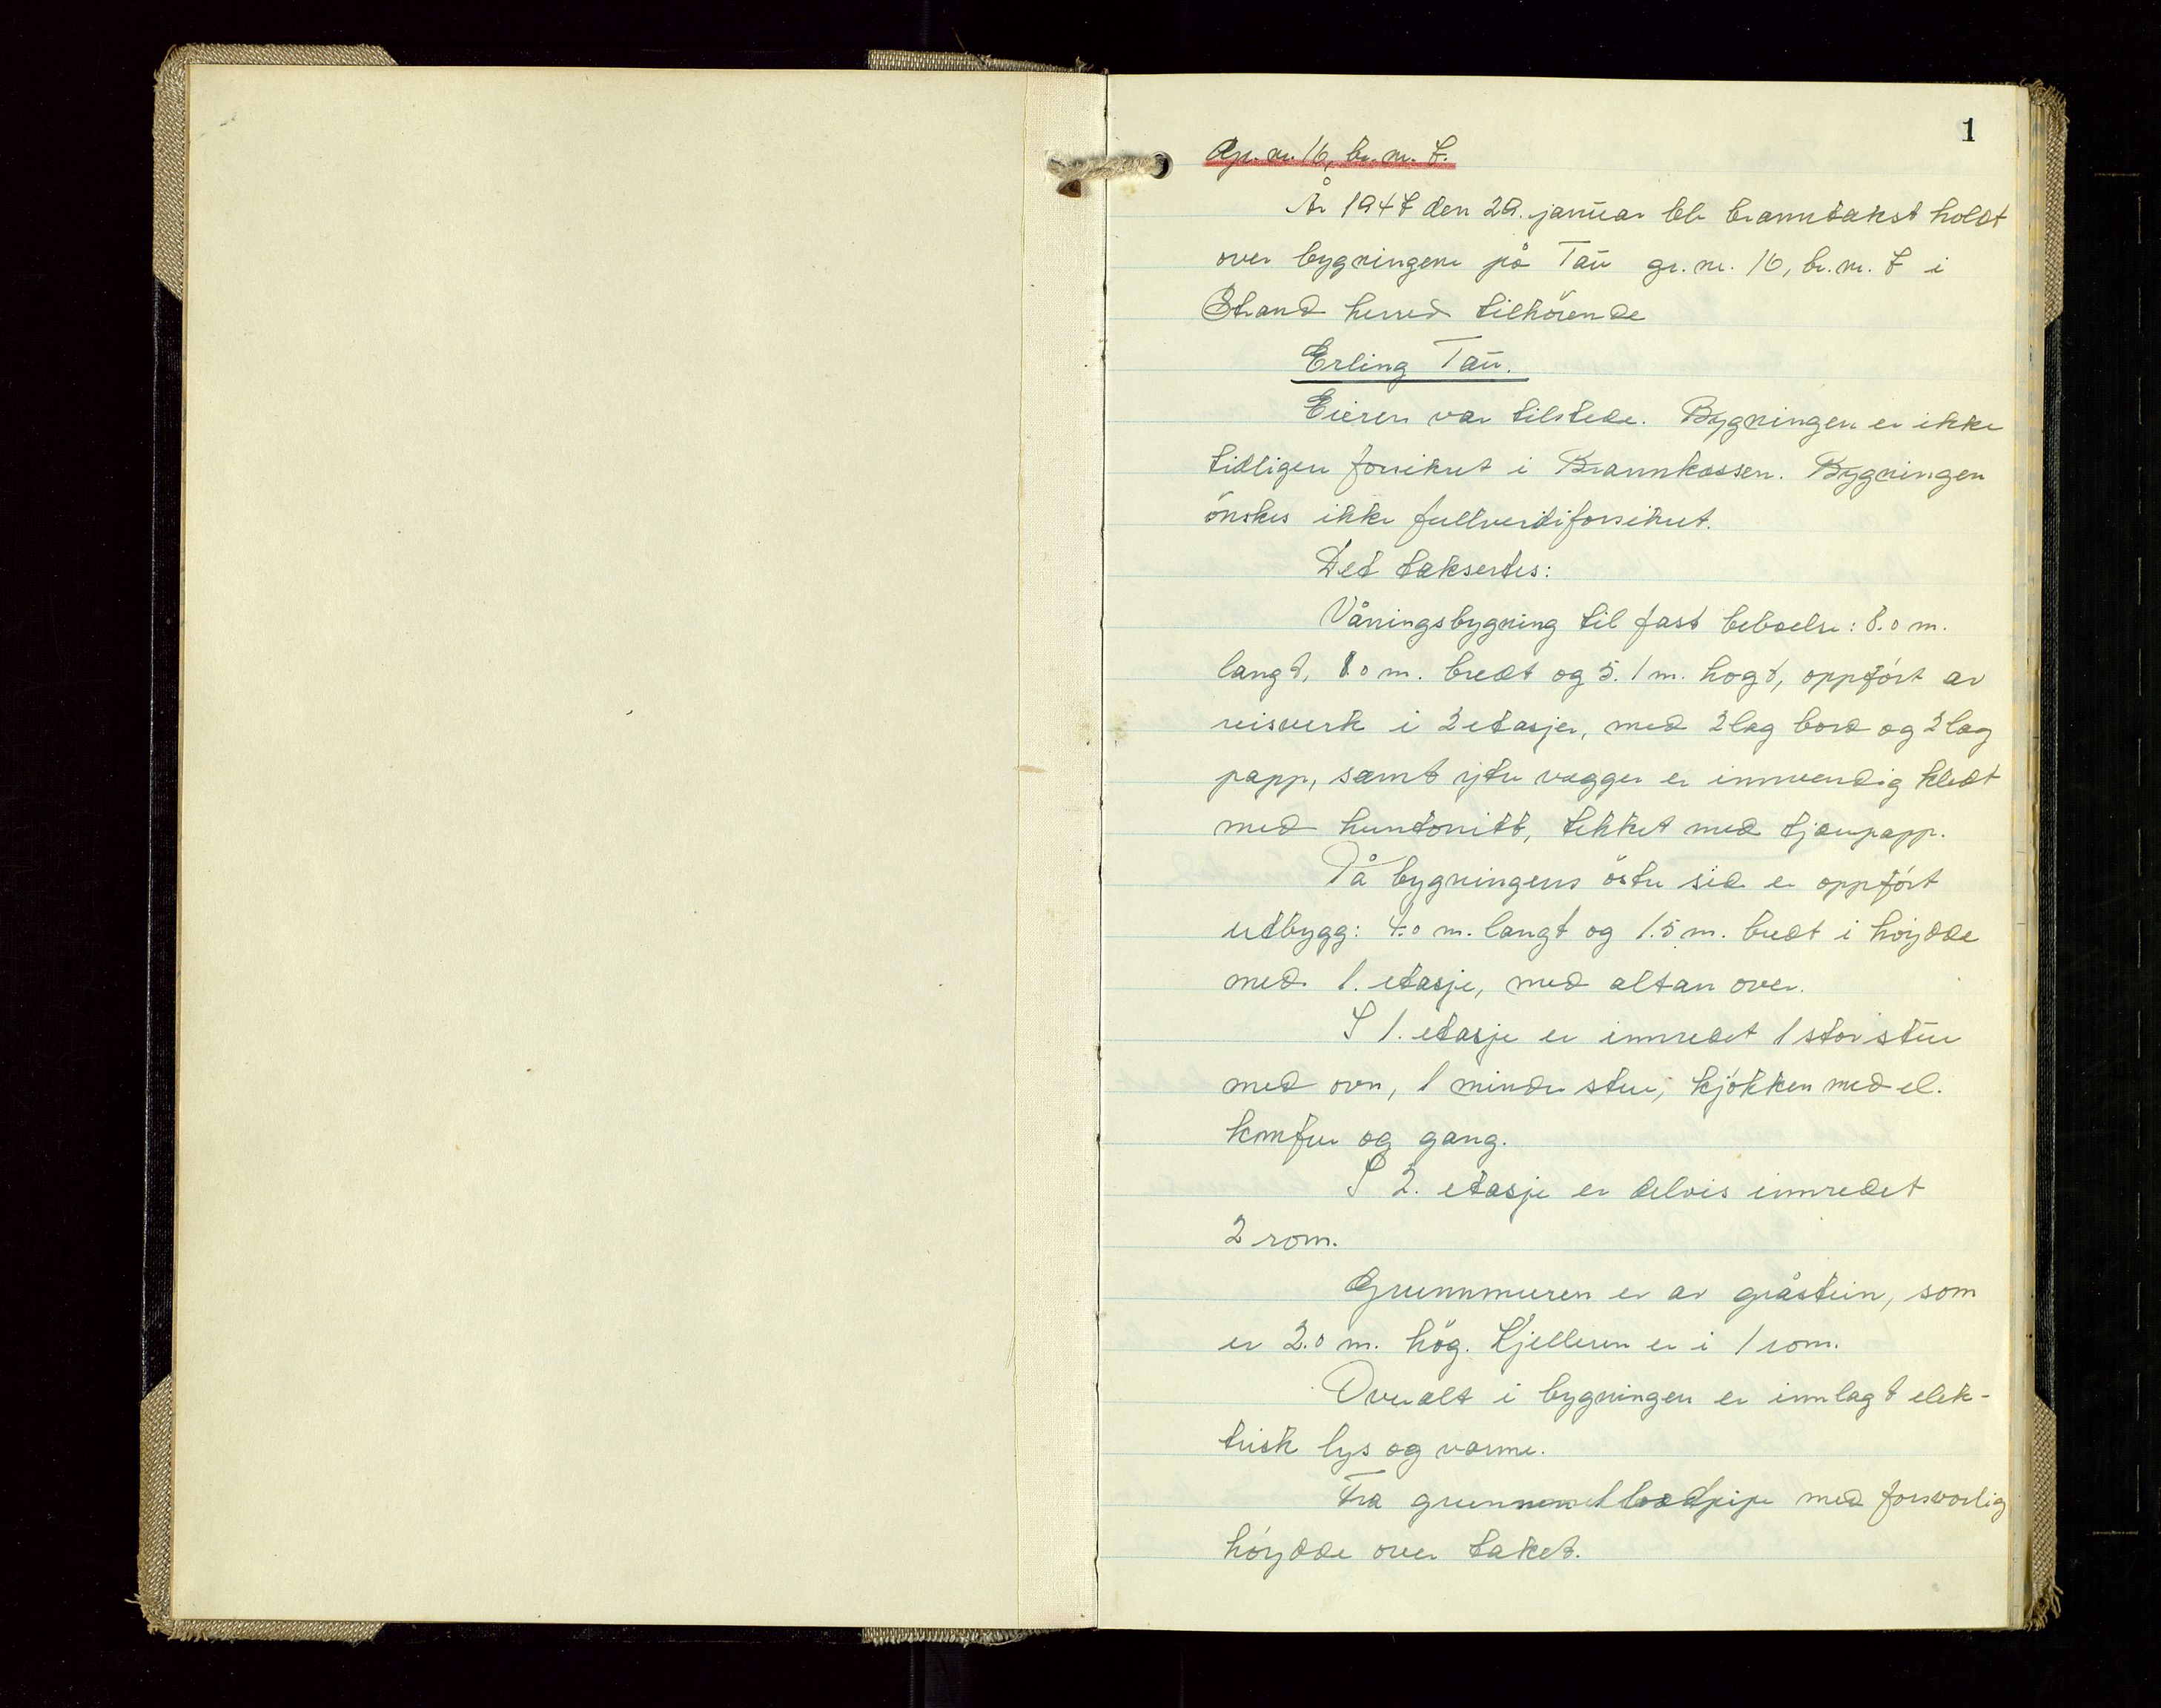 1
Gr. nr. 16, br. nr. 7.
År 1947 den 29. januar ble branntakst holdt
over bygningene på Tau gr. nr. 16, br. nr. 7 i
Strand herred tilhörende
Erling Tau.
Eieren var tilstede. Bygningen er ikke
tidligere forsikret i Brannkassen. Bygningen
önskes ikke fullverdiforsikret.
Det taksertes:
Våningsbygning til fast beboelse: 8.0 m.
langt, 8.0 m. bredt og 5.1 m. hogt, oppfört av
reisverk i 2 etasjer, med 2 lag bord og 2 lag
papp, samt ytre vegger er innvendig kledt
med huntonitt, tekket med tjærepapp.
På bygningens östre side er oppfört
utbygg: 4.0 m. langt og 1.5 m. bredt i höydde
med 1. etasje, med altan over.
I 1. etasje er innredet 1 stor stue
med ovn, 1 mindre stue, kjökken med el.
komfur og gang.
I 2. etasje er delvis innredet
2 rom.
Grunnmuren er av gråstein, som
er 2.0 m. hög. Kjelleren er i 1 rom.
Overalt i bygningen er innlagt elek-
trisk lys og varme.
Fra grunnen 1 lodd pipe med forsvarlig
höydde over taket.